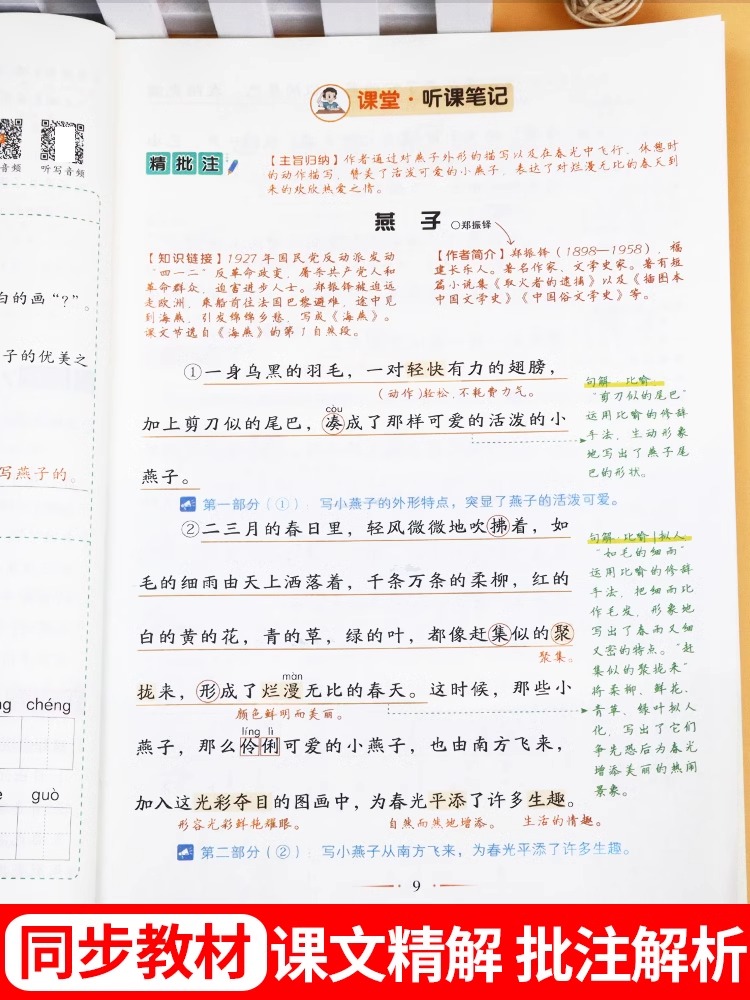 音频
听写音频
白的画“?”。
子的优美之
写燕子的。
ng chéng
guò
课堂·听课笔记
精批注
【主旨归纳】作者通过对燕子外形的描写以及在春光中飞行、休憩时
的动作描写，赞美了活泼可爱的小燕子，表达了对烂漫无比的春天到
来的欢欣热爱之情。
燕子
○郑振铎
【知识链接】1927年国民党反动派发动
“四一二”反革命政变，屠杀共产党人和
革命群众，迫害进步人士。郑振铎被迫远
走欧洲，乘船前往法国巴黎避难，途中见
到海燕，引发绵绵乡愁，写成《海燕》。
课文节选自《海燕》的第1自然段。
【作者简介】郑振铎（1898—1958），福
建长乐人。著名作家、文学史家。著有短
篇小说集《取火者的逮捕》以及《插图本
中国文学史》《中国俗文学史》等。
①一身乌黑的羽毛，一对轻快有力的翅膀，
(动作)轻松，不耗费力气。
còu
加上剪刀似的尾巴，凑成了那样可爱的活泼的小
燕子。
句解：比喻：
“剪刀似的尾巴”
运用比喻的修辞
手法，生动形象
地写出了燕子尾
巴的形状。
第一部分（①）：写小燕子的外形特点，突显了燕子的活泼可爱。
②二三月的春日里，轻风微微地吹拂着，如
毛的细雨由天上洒落着，千条万条的柔柳，红的
白的黄的花，青的草，绿的叶，都像赶集似的聚
聚集。
màn
拢来，形成了烂漫无比的春天。这时候，那些小
颜色鲜明而美丽。
líng lì
燕子，那么伶俐可爱的小燕子，也由南方飞来，
加入这光彩夺目的图画中，为春光平添了许多生趣。
形容光彩鲜艳耀眼。
自然而然地增添。
生活的情趣。
句解：比喻|拟人
“如毛的细雨”
运用比喻的修辞
手法，把细雨比
作毛发，形象地
写出了春雨又细
又密的特点。“赶
集似的聚拢来”
将柔柳、鲜花、
青草、绿叶拟人
化，写出了它们
争先恐后为春光
增添美丽的热闹
景象。
第二部分（②）：写小燕子从南方飞来，为春光平添了许多生趣。
9
同步教材 课文精解 批注解析